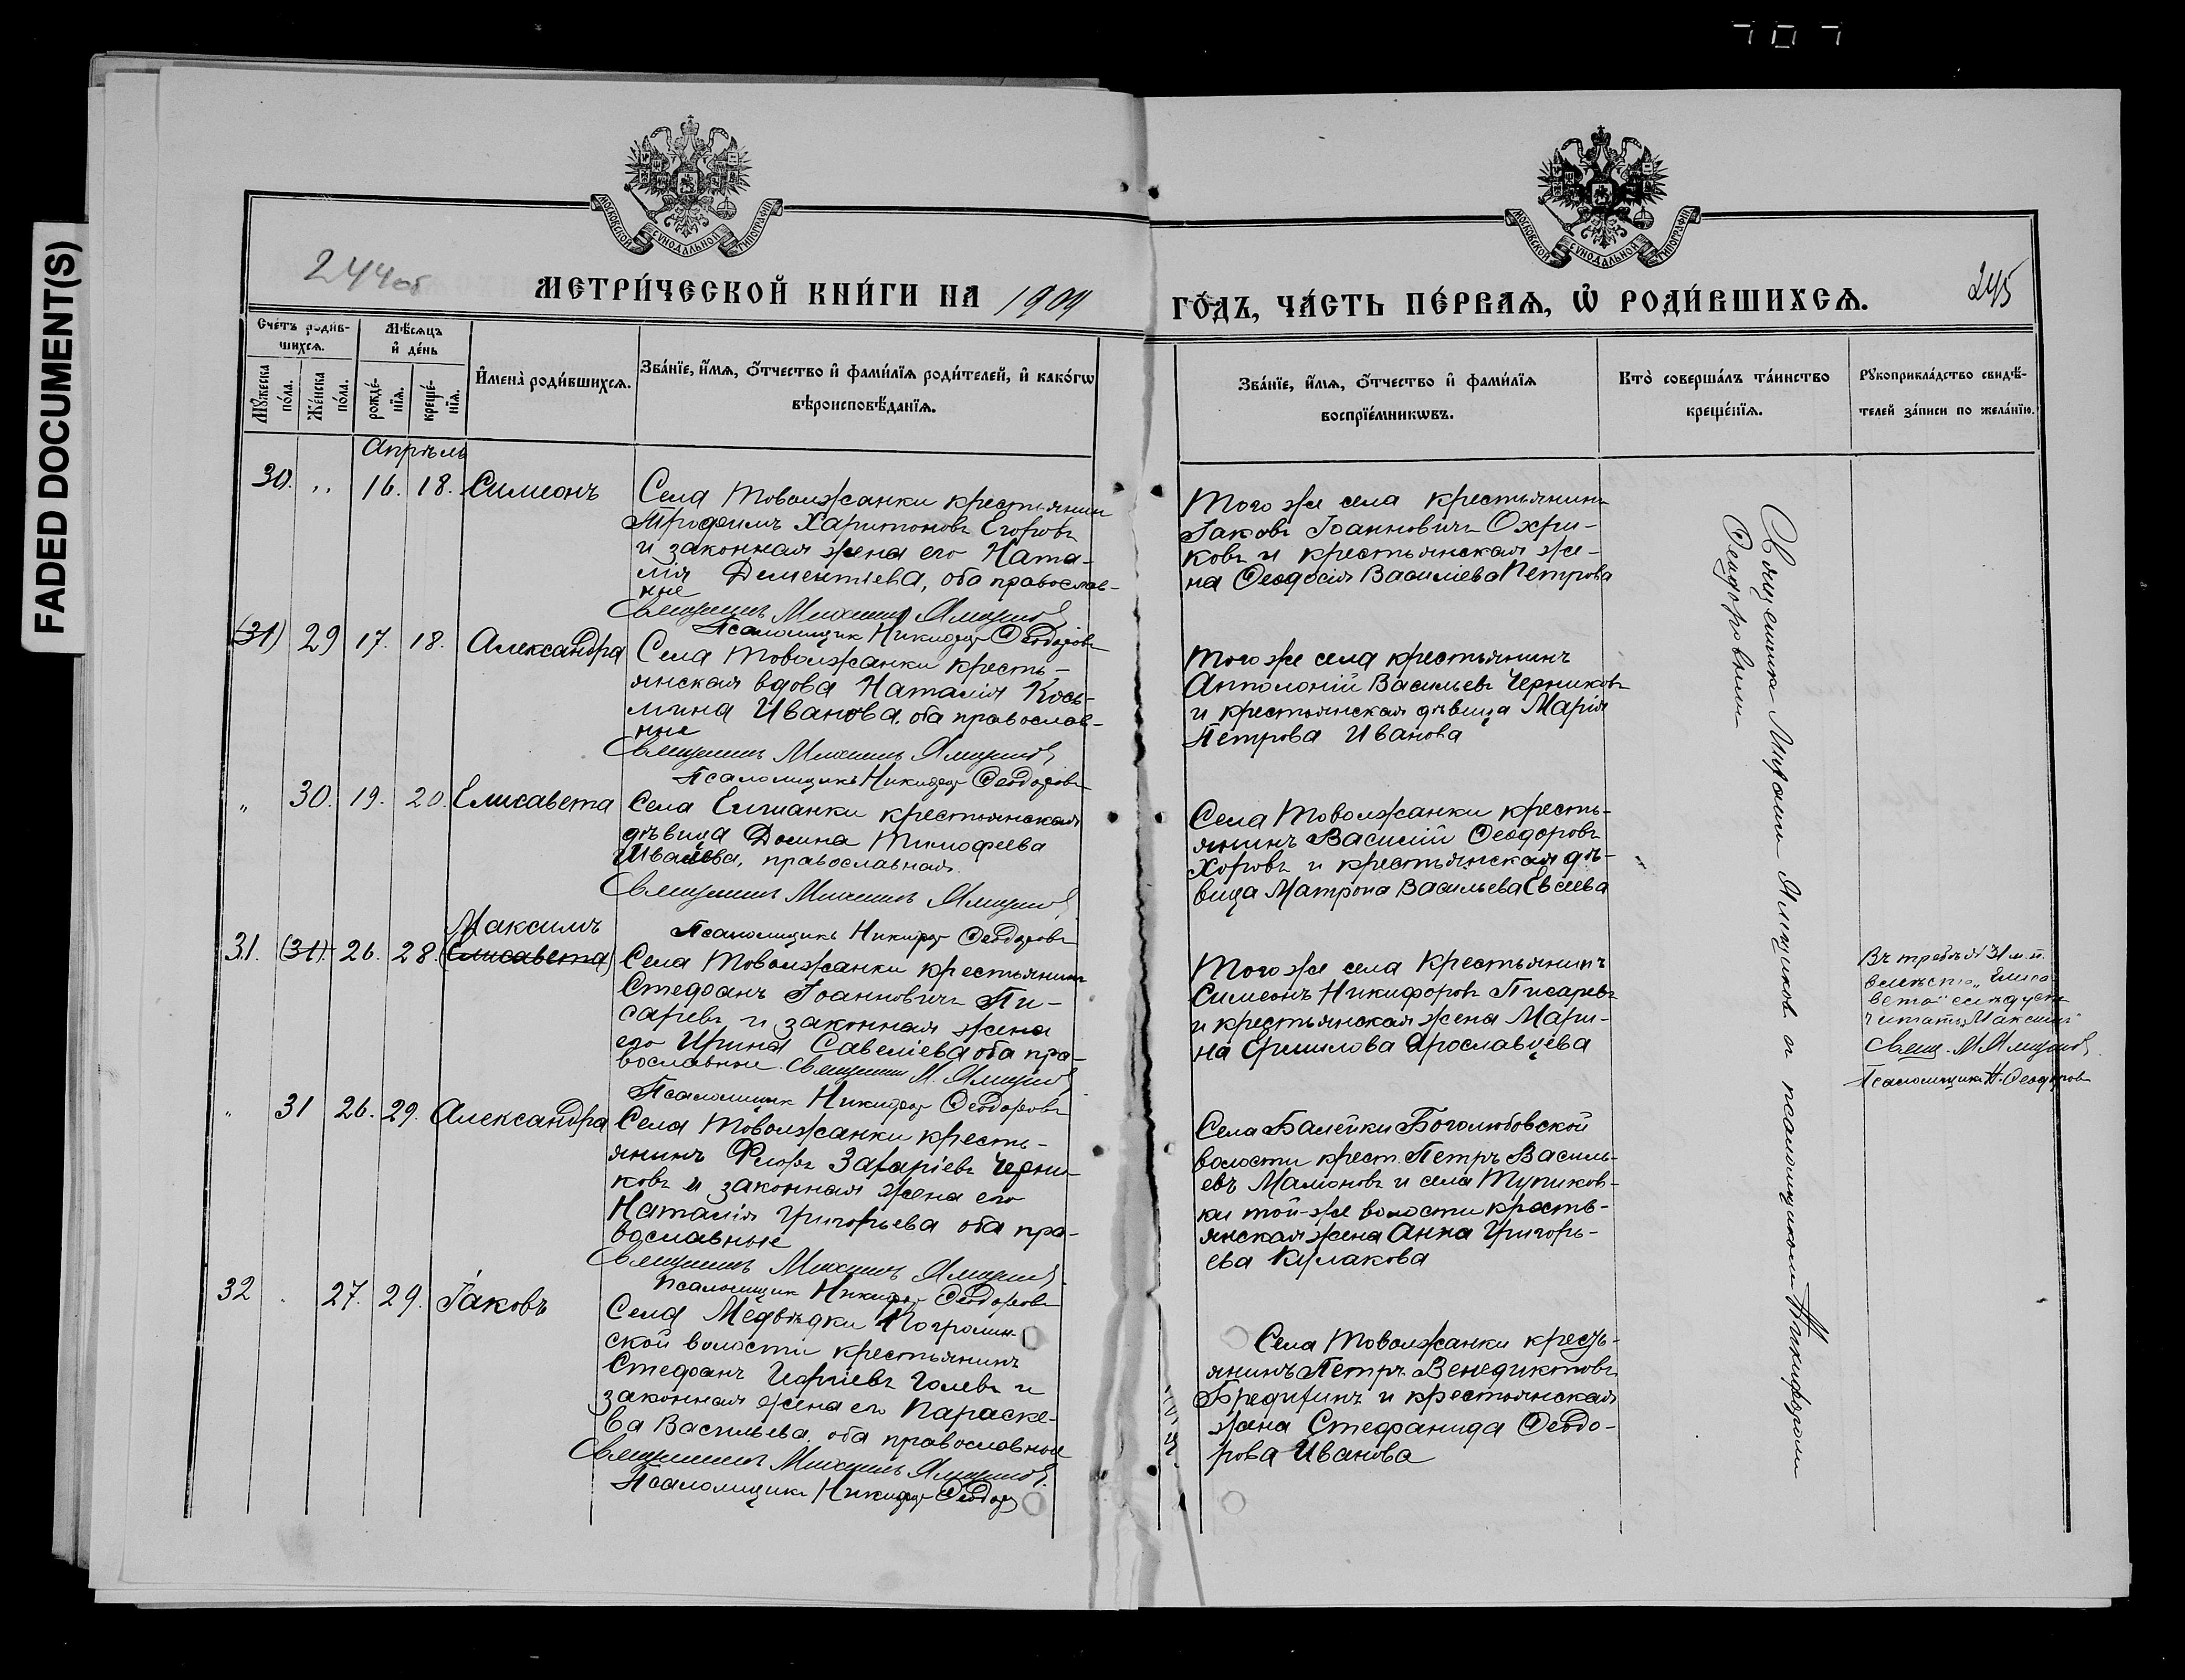 FADED DOCUMENT(S)
707
МОСКОВСКОЙ СѴНОДАЛЬНОЙ ТИПОГРАФІИ
МОСКОВСКОЙ СѴНОДАЛЬНОЙ ТИПОГРАФІИ
244об
МЕТРИ́ЧЕСКОЙ КНИ́ГИ НА 1909
ГО́ДЪ, ЧА́СТЬ ПЕ́РВАѦ, Ѽ РОДИ́ВШИХСѦ.
245
Сче́тъ роди́в-
шихсѧ.
Мꙋ́жеска по́ла.
Же́нска по́ла.
Мѣ́сѧцъ
и҆ де́нь
рожде́-
нїѧ.
креще́-
нїѧ.
И҆мена̀ роди́вшихсѧ.
Зва́нїе, и҆́мѧ, ѻ҆́тчество и҆ фами́лїѧ роди́телей, и҆ како́гѡ
вѣроисповѣ́данїѧ.
Зва́нїе, и҆́мѧ, ѻ҆́тчество и҆ фами́лїѧ
воспрїе́мникѡвъ.
Кто̀ соверша́лъ та́инство
креще́нїѧ.
Рꙋкоприкла́дство свидѣ́-
телей за́писи по жела́нїю.
Апрѣль
30. „ 16. 18. Симеонъ
Села Товолжанки крестьянин
Трофимъ Харитоновъ Егоровъ
и законная жена его Ната-
лія Дементіева, оба православ-
ные
Священникъ Михаилъ Ямщиков
Псаломщик Никифор Ѳеодоровъ
Того же села крестьянинъ
Іаковъ Іоанновичъ Охри-
ковъ и крестьянская же-
на Ѳеодосія Василіева Петрова
(31) 29 17. 18. Александра
Села Товолжанки кресть-
янская вдова Наталія Кось-
мина Иванова, оба православ-
ные
Священникъ Михаилъ Ямщиков
Псаломщикъ Никифор Ѳеодоровъ
Того же села крестьянинъ
Апполоній Васильевъ Черниковъ
и крестьянская дѣвица Марія
Петрова Иванова
„ 30. 19. 20. Елисавета
Села Елшанки крестьянская
дѣвица Домна Тимофеева
православная.
Священникъ Михаилъ Ямщиков
Псаломщикъ Никифор Ѳеодоровъ
Села Товолжанки кресть-
янинъ Василій Ѳеодоровъ
Хоровъ и крестьянская дѣ-
вица Матрона Васильева Евсеева
Максимъ
31. (31). 26. 28. (Елисавета)
Села Товолжанки крестьянинъ
Стефанъ Іоанновичъ Пи-
саревъ и законная жена
его Ирина Савеліева оба пра-
вославные. Священник М. Ямщиков
Псаломщик Никифор Ѳеодоровъ
Того же села крестьянинъ
Симеонъ Никифоровъ Писаревъ
и крестьянская жена Мари-
на Ермилова Ярославцева
вместо „Елиса-
вета" следует
читать „Максимъ"
Свящ. М. Ямщиков.
Псаломщикъ Н. Ѳеодоровъ
„ 31 26. 29. Александра
Села Товолжанки кресть-
янинъ Флоръ Захаріевъ Черни-
ковъ и законная жена его
Наталія Григорьева оба пра-
вославные
Священникъ Михаилъ Ямщиков
Псаломщик Никифор Ѳеодоровъ
Села Балейки Боголюбовской
волости крест. Петръ Василь-
евъ Мамоновъ и села Тупиков-
ки той-же волости кресть-
янская жена Анна Григорь-
ева Кулакова
32 . 27. 29. Іаковъ
Села Медвѣдки Погромин-
ской волости крестьянинъ
Стефанъ Голевъ и
законная жена его Параске-
ва Васильева, оба православные
Священникъ Михаилъ Ямщиков.
Псаломщикъ Никифор Ѳеодор
Села Товолжанки кресть-
янинъ Петръ Венедиктовъ
Бредихинъ и крестьянская
жена Стефанида Ѳеодо-
рова Иванова
Священник Михаил Ямщиков и псаломщиком Никифором
Ѳеодоровым